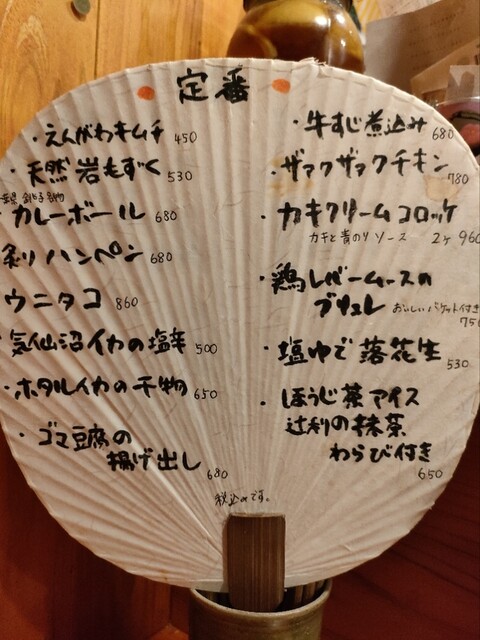 定番
・牛すじ煮込み 680
・ザァクザァクチキン 780
・カキクリームコロッケ
カキと青のりソース 2ヶ 960
・鶏レバームースの
ブリュレ おいしいバケット付き
750
・塩ゆで落花生 530
・ほうじ茶アイス
辻利の抹茶
わらび付き
650
・えんがわキムチ 450
・天然岩もずく 530
カレーボール 680
炙りハンペン 680
ウニタコ 860
気仙沼イカの塩辛 500
・ホタルイカの干物 650
・ゴマ豆腐の
揚げ出し 680
税込みです。